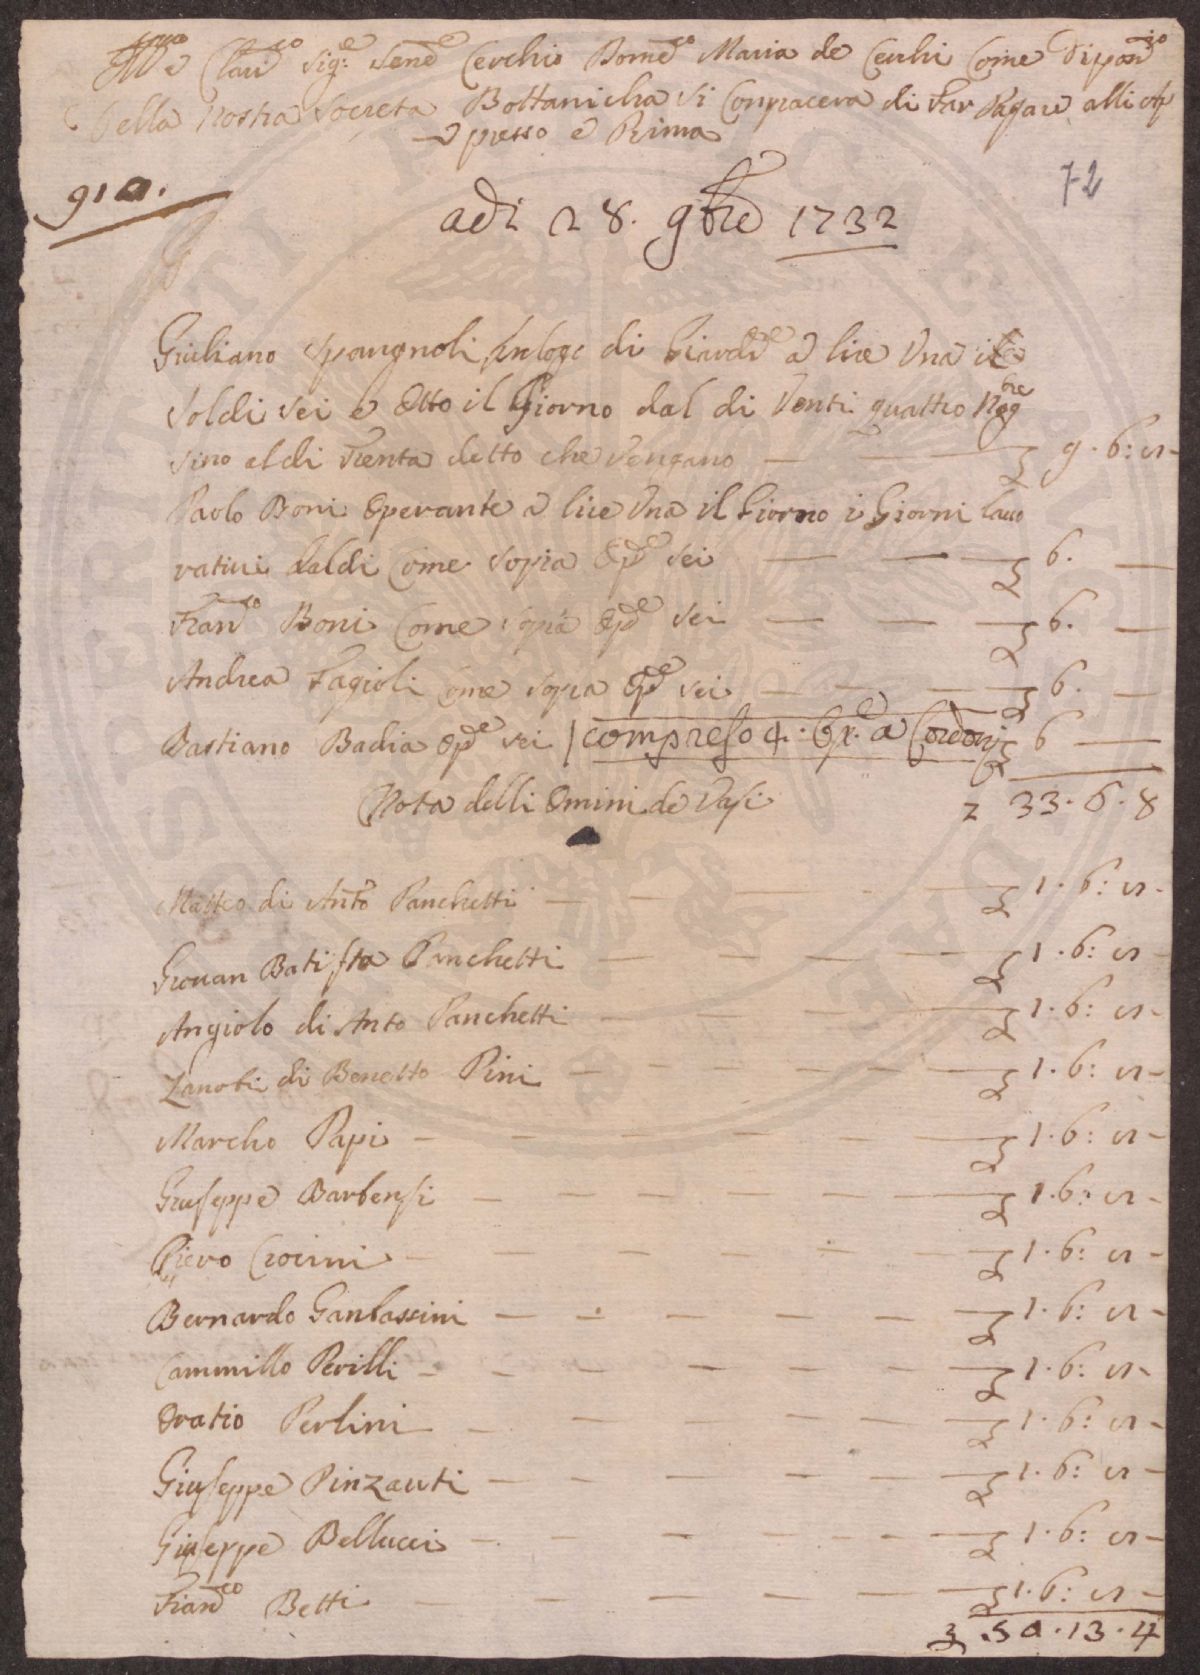 Ill.mo e Clar.mo Sig.e Sen.e Cerchio Dome.co Maria de Cerchi Come Diposi.rio
Della Nostra Società Bottanicha Si Conpiacera di Far Pagare alli Ap
presso e Prima
910.
72
adi 28. 9bre 1732
Giuliano Spangnoli di Giardi.e a lire Una e
Soldi Sei e Otto il Giorno dal di Venti quattro Nog.bre
Sino al di Trenta detto che Vengano — — 9 · 6: 8 -
Paolo Boni Operante a lire Una il Giorno i Giorni lauo
ratiui daldi Come Sopra Op.e Sei — — — 6. —
Fran.co Boni Come Sopra Op.e Sei — — — 6. —
Andrea Fagioli Come Sopra Op.e Sei — — — 6. —
Bastiano Badia Op.e Sei | compreso 4. Op.e a Cordoni 6 —
Nota delli Omini de Vasi 33 · 6 · 8
Matteo di Anto Panchetti — — — 1 · 6: 8 -
Giouan Batista Panchetti — — — 1 · 6: 8 -
Angiolo di Anto Panchetti — — — 1 · 6: 8 -
Zanobi di Benetto Pini — — — 1 · 6: 8 -
Marcho Papi — — — 1 · 6: 8 -
Giuseppe Barbensi — — — 1 · 6: 8 -
Piero Crocini — — — 1 · 6: 8 -
Bernardo Ganbassini — — — 1 · 6: 8 -
Cammillo Perilli — — — 1 · 6: 8 -
Oratio Perlini — — — 1 · 6: 8 -
Giuseppe Pinzauti — — — 1 · 6: 8 -
Giuseppe Bellucci — — — 1 · 6: 8 -
Fran.co Betti — — — 1 · 6: 8 -
50 · 13 · 4